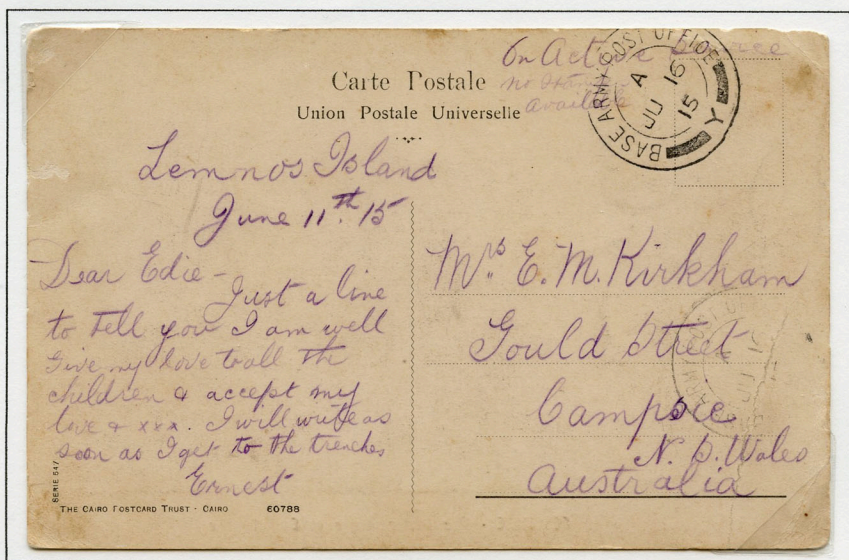 Carte Postale
Union Postale Universelle
On Active Service
no
available
BASE ARMY POST OFFICE Y
A
JU 16
15
Lemnos Island
June 11th. 15
Dear Edie -
Just a line
to tell you I am well
Give my love to all the
children & accept my
love & xxx. I will write as
soon as I get to the trenches
Ernest
Mrs. E. M. Kirkham
Gould Street
Campsie
N. S. Wales
Australia
SERIE 647
THE CAIRO POSTCARD TRUST - CAIRO 60788